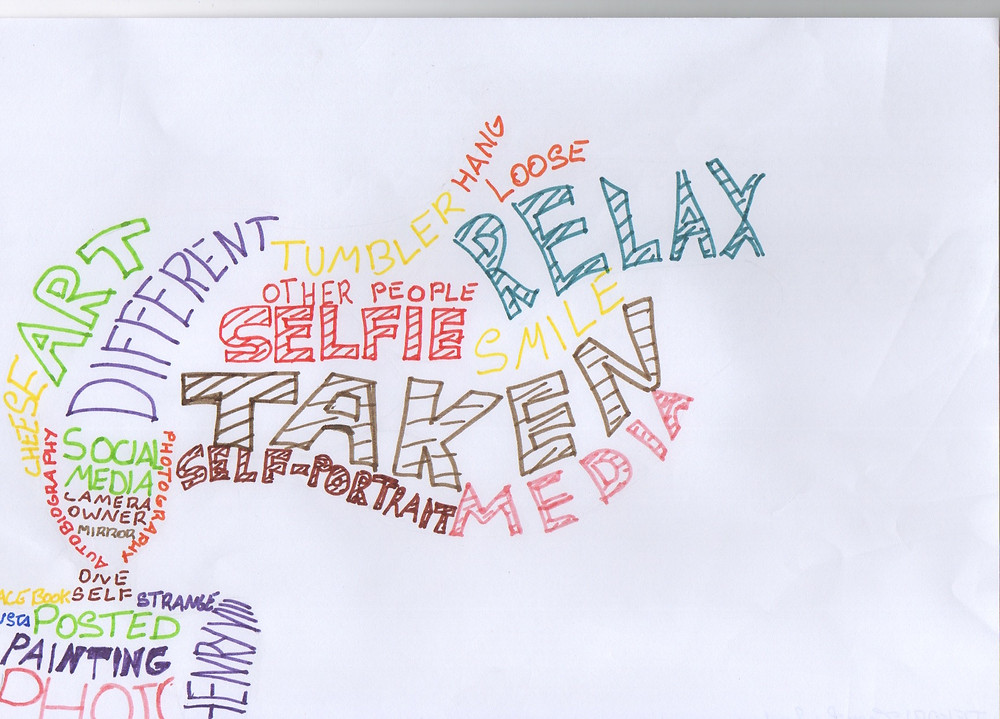 HANG
LOOSE
RELAX
ART
DIFFERENT
TUMBLER
OTHER PEOPLE
SELFIE
SMILE
CHEESE
TAKEN
MEDIA
SELF-PORTRAIT
AUTOBIOGRAPHY
SOCIAL
MEDIA
PHOTOGRAPHY
CAMERA
OWNER
MIRROR
ONE
SELF
ACEBOOK
STRANGE
USTA
POSTED
HENRYVIII
PAINTING
PHOTO